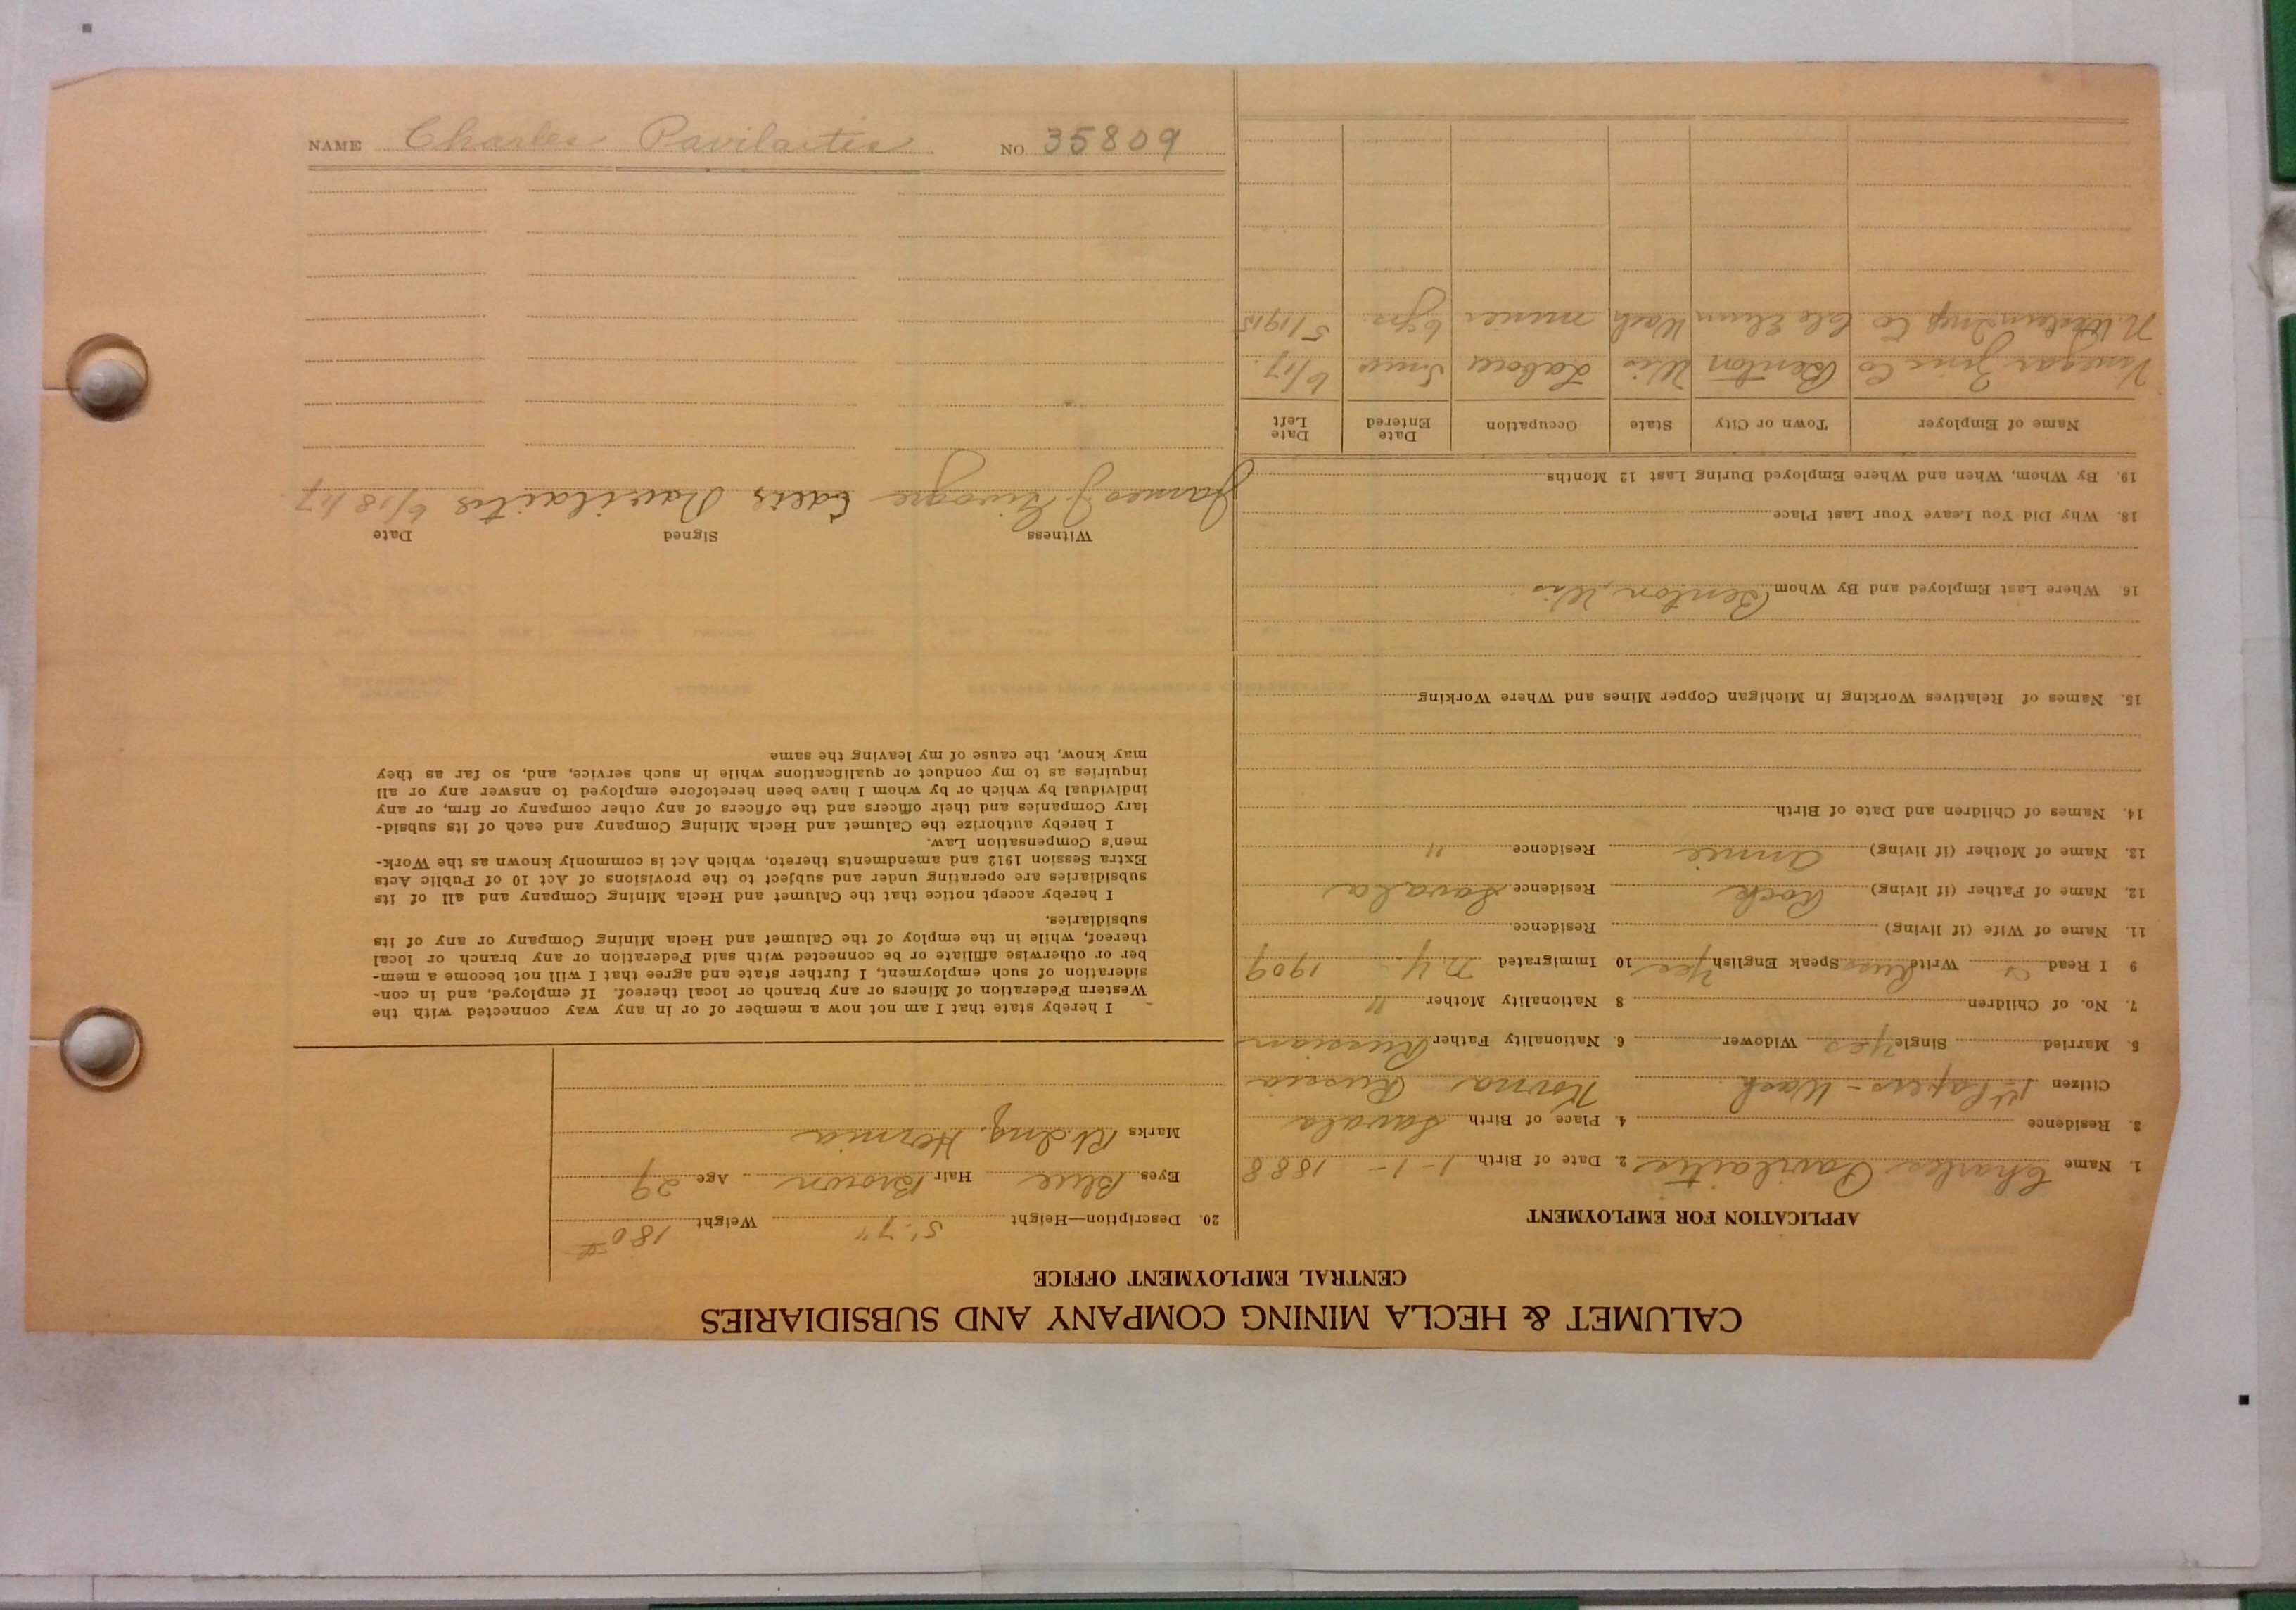 CALUMET & HECLA MINING COMPANY AND SUBSIDIARIES
CENTRAL EMPLOYMENT OFFICE
APPLICATION FOR EMPLOYMENT
1. Name Charles Pavilaitis 2. Date of Birth 1-1- 1888
3. Residence 4. Place of Birth Savala
Citizen 1st Papers - Wash Kovna Russia
5. Married Single Yes Widower 6. Nationality Father Russian
7. No. of Children 8 Nationality Mother "
9 I Read & Write Russ Speak English Yes 10 Immigrated N.Y. 1909
11. Name of Wife (if living) Residence
12. Name of Father (if living) Rock Residence Savala
13. Name of Mother (if living) Annie Residence "
14. Names of Children and Date of Birth
15. Names of Relatives Working in Michigan Copper Mines and Where Working
16. Where Last Employed and By Whom Benton, Wis
18. Why Did You Leave Your Last Place
19. By Whom, When and Where Employed During Last 12 Months
Name of Employer Town or City State Occupation Date Entered Date Left
Vinegar Zinc Co Benton Wis Labour 5 mos 6/17.
N. Western Imp Co Cle Elum Wash miner 6 yrs. 5/1915
20. Description—Height 5' 7" Weight 180#
Eyes Blue Hair Brown Age 29
Marks Rt. Ing. Hernia
I hereby state that I am not now a member of or in any way connected with the
Western Federation of Miners or any branch or local thereof. If employed, and in con-
sideration of such employment, I further state and agree that I will not become a mem-
ber or otherwise affiliate or be connected with said Federation or any branch or local
thereof, while in the employ of the Calumet and Hecla Mining Company or any of its
subsidiaries.
I hereby accept notice that the Calumet and Hecla Mining Company and all of its
subsidiaries are operating under and subject to the provisions of Act 10 of Public Acts
Extra Session 1912 and amendments thereto, which Act is commonly known as the Work-
men's Compensation Law.
I hereby authorize the Calumet and Hecla Mining Company and each of its subsid-
iary Companies and their officers and the officers of any other company or firm, or any
individual by which or by whom I have been heretofore employed to answer any or all
inquiries as to my conduct or qualifications while in such service, and, so far as they
may know, the cause of my leaving the same
Witness Signed Date
James J. Pavilaitis 6/18/17
NAME Charles Pavilaitis NO. 35809